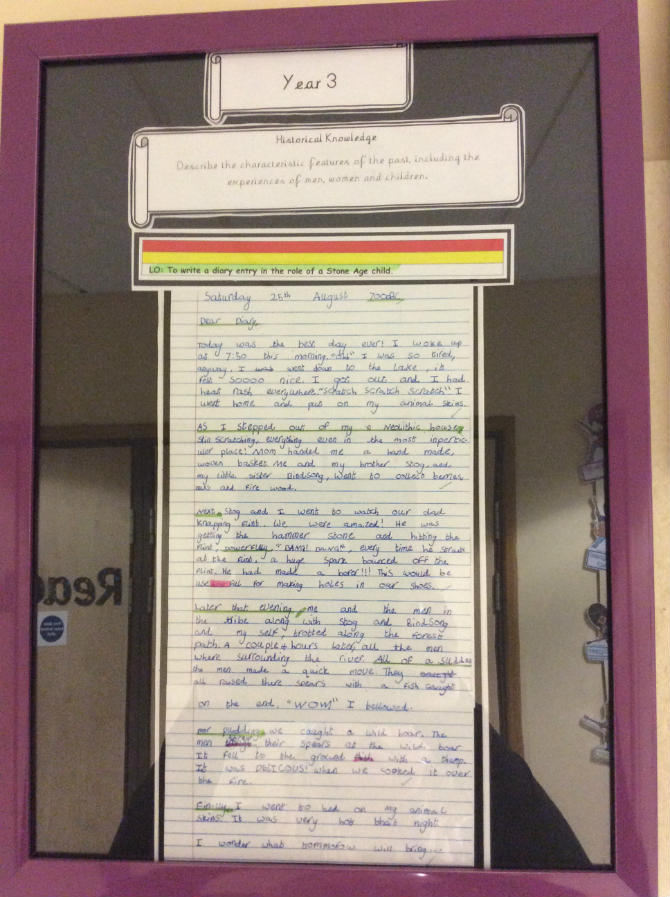 Year 3
Historical Knowledge
Describe the characteristic features of the past, including the
experiences of men, women and children.
LO: To write a diary entry in the role of a Stone Age child.
Saturday 25th August 700BC
Dear Diary
Today was the best day ever! I woke up
at 7:50 this morning. I was so tired,
anyway, I went down to the lake, it
felt soooo nice. I got out and I had
heat rash everywhere. "Scratch Scratch Scratch" I
went home and put on my animal skins.
As I stepped out of my Neolithic house,
skin scratching, everything even in the most
place! Mom handed me a hand made,
woven basket. Me and my brother Stog, and
my little sister BirdSong, went to collect berries,
nuts and fire wood.
Next, Stog and I went to watch our dad
knapping flint. We were amazed! He was
getting the hammer stone and hitting the
flint, powerfully, every time he
at the flint, a huge spark bounced off the
flint. He had made a borer!!! This would be
useful for making holes in our shoes.
Later that evening, me and the men in
the tribe along with Stog and BirdSong
and my self, trotted along the forest
path. A couple of hours later, all the men
where surrounding the river. All of a
the men made a quick move. They
all raised there spears with a fish caught
on the end. "WOW" I bellowed.
For pudding we caught a wild boar. The
men their spears at the wild boar
It fell to the ground with a thump.
It was DELICOUS! when we cooked it over
the fire.
Finilly, I went to bed on my animal
skins. It was very hot that night
I wonder what tommorow will bring...
Rea